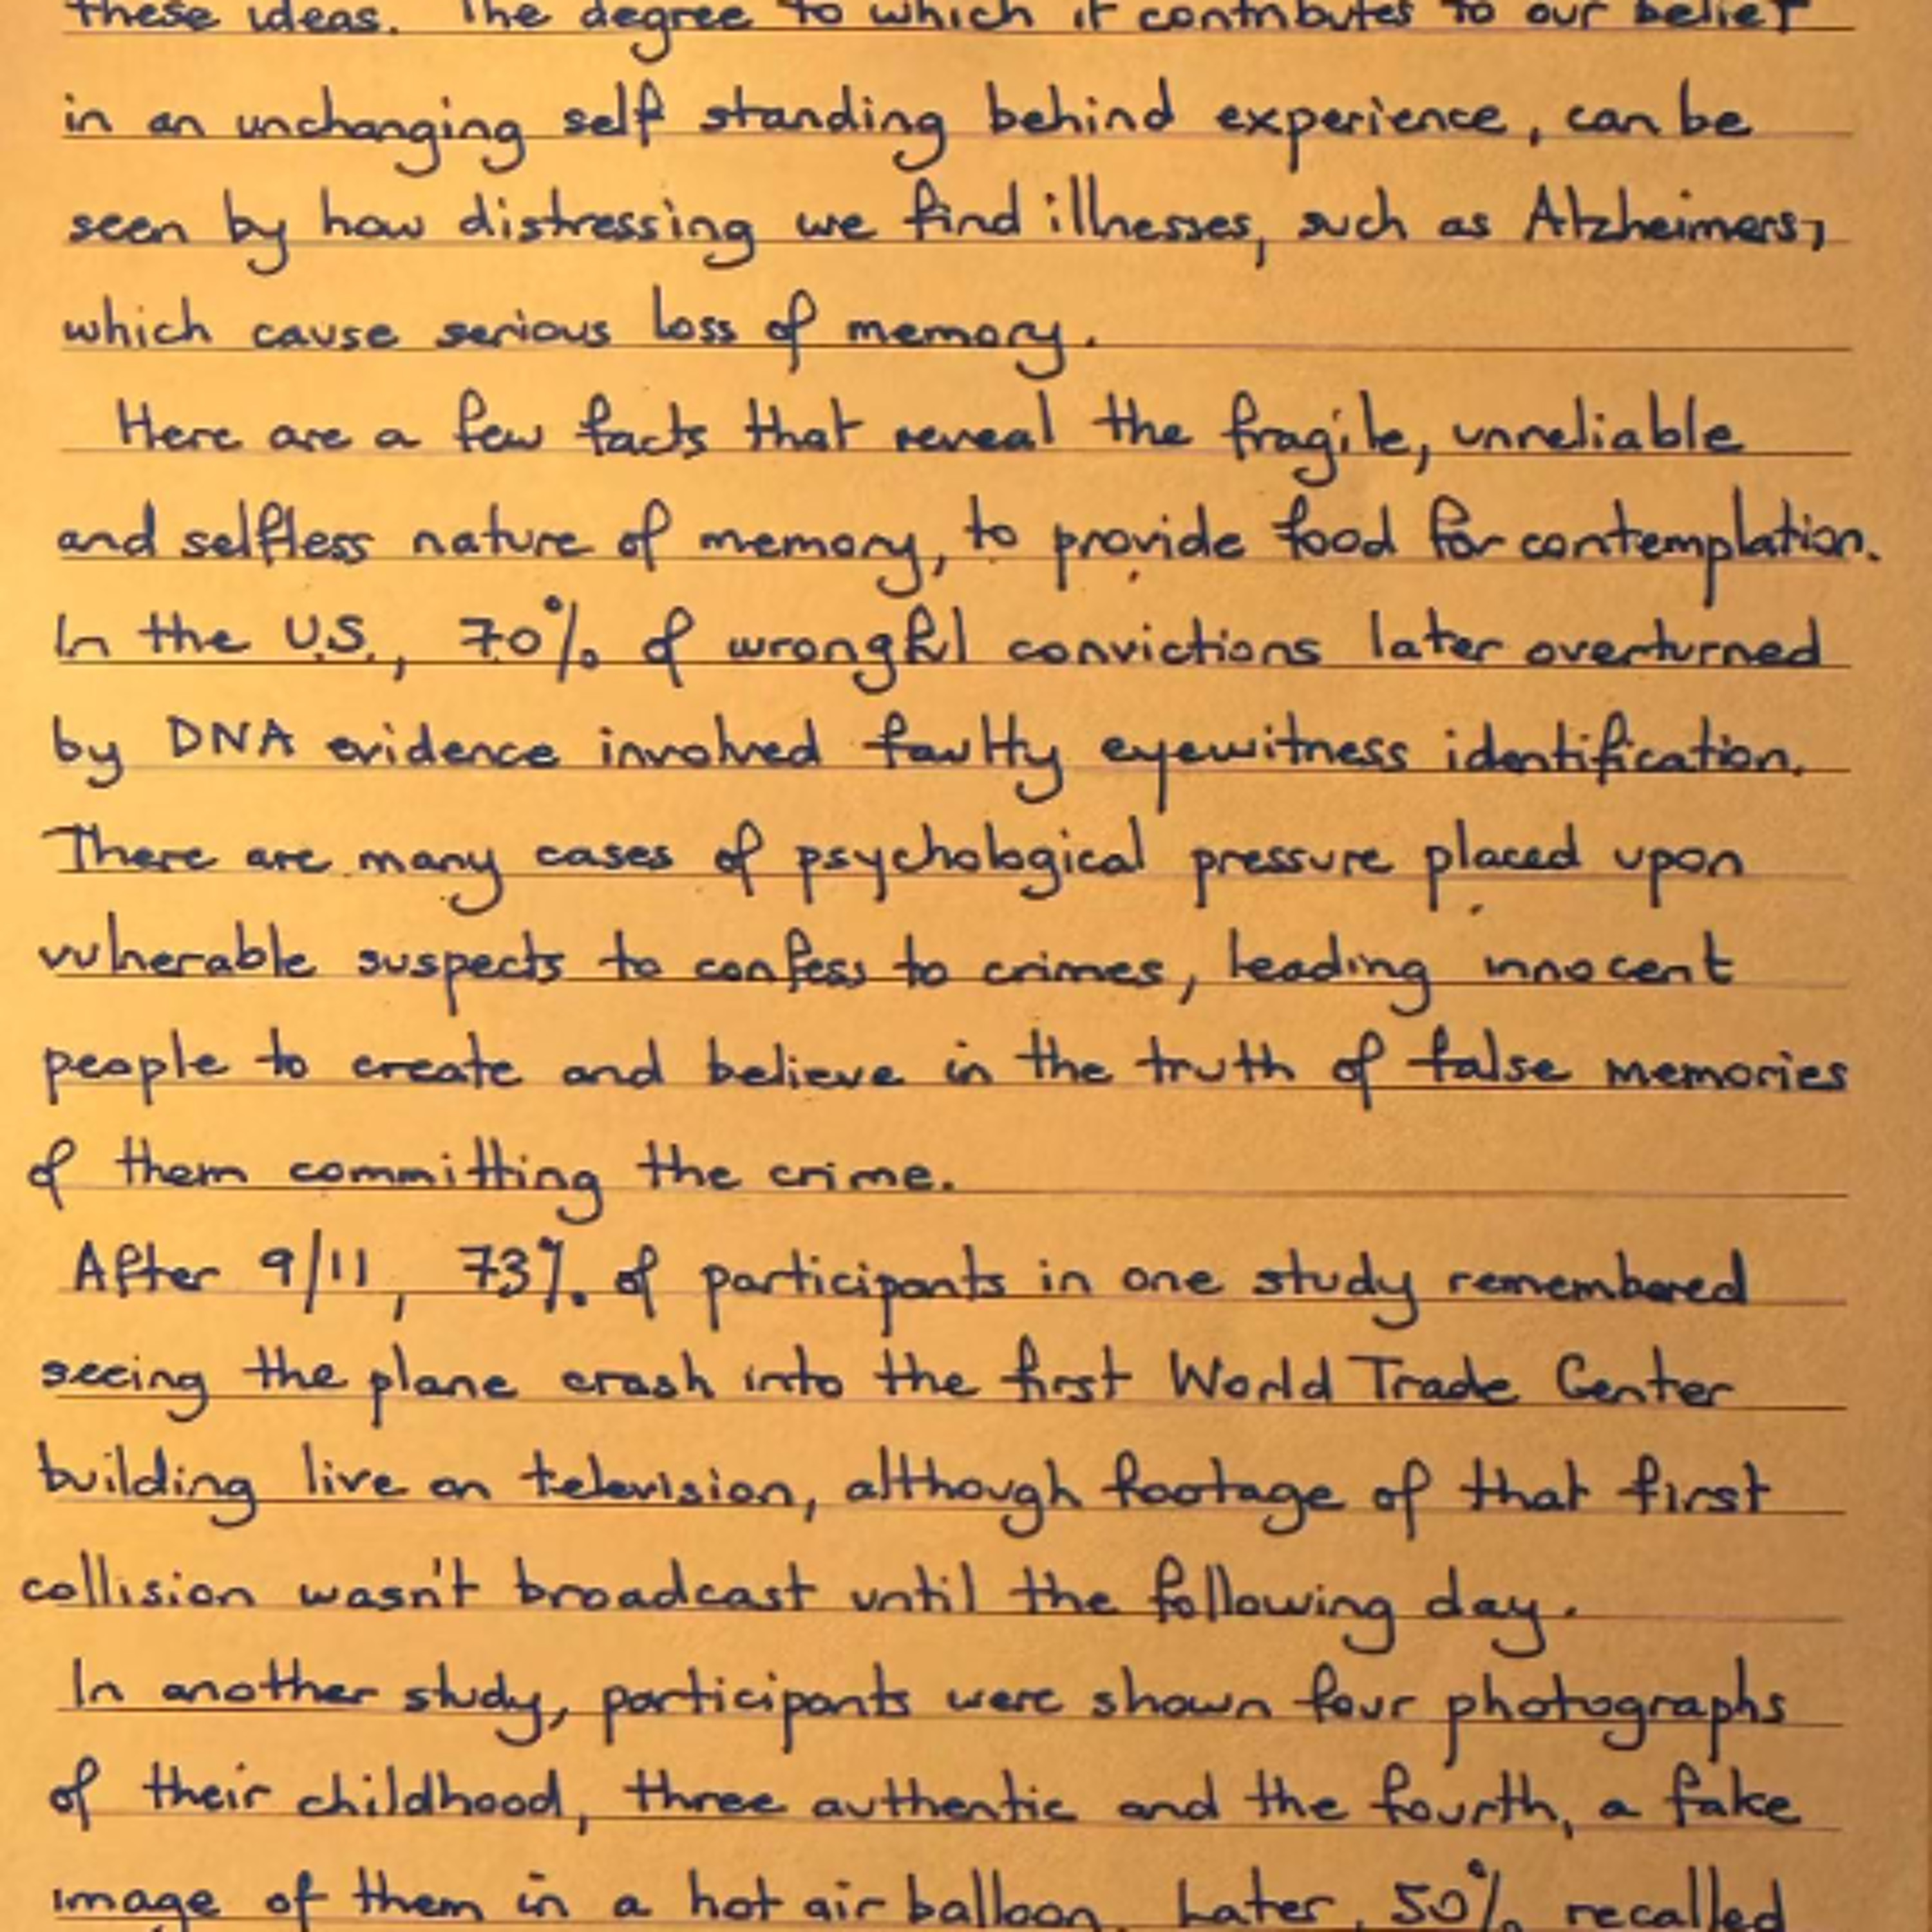 these ideas. The degree to which it contributes to our belief
in an unchanging self standing behind experience, can be
seen by how distressing we find illnesses, such as Alzheimers,
which cause serious loss of memory.
Here are a few facts that reveal the fragile, unreliable
and selfless nature of memory, to provide food for contemplation.
In the U.S., 70% of wrongful convictions later overturned
by DNA evidence involved faulty eyewitness identification.
There are many cases of psychological pressure placed upon
vulnerable suspects to confess to crimes, leading innocent
people to create and believe in the truth of false memories
of them committing the crime.
After 9/11, 73% of participants in one study remembered
seeing the plane crash into the first World Trade Center
building live on television, although footage of that first
collision wasn't broadcast until the following day.
In another study, participants were shown four photographs
of their childhood, three authentic and the fourth, a fake
image of them in a hot air balloon. Later, 50% recalled